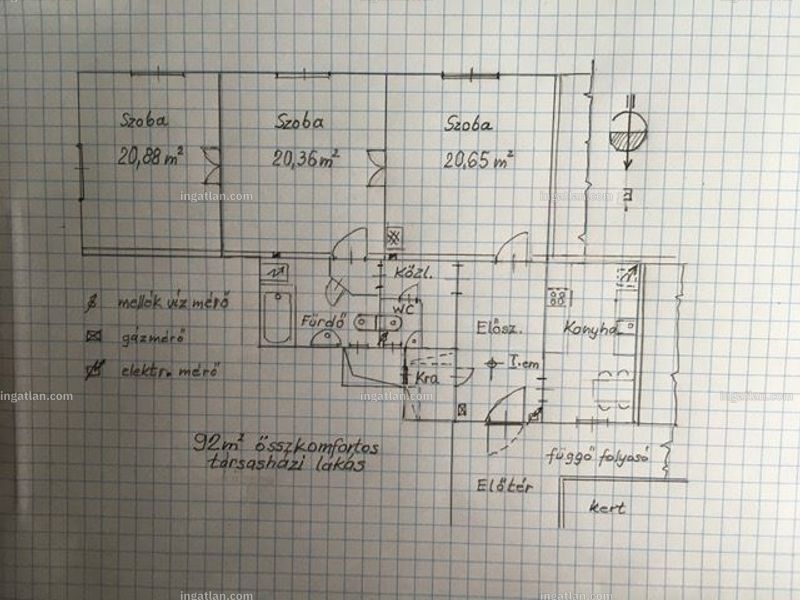 Szoba
Szoba
Szoba
20,88 m²
20,36 m²
20,65 m²
ingatlan.com
ingatlan.com
ingatlan.com
É
Közl.
mellék víz mérő
WC
Fürdő
Elősz.
Konyha
gázmérő
I.em
elektr. mérő
Kra
ingatlan.com
ingatlan.com
ingatlan.com
92m² összkomfortos
társasházi lakás
függő folyosó
Előtér
kert
ingatlan.com
ingatlan.com